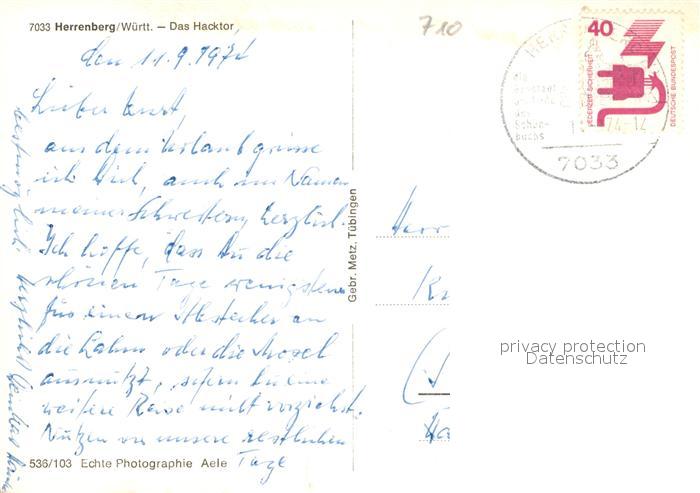 7033 Herrenberg/Württ. — Das Hacktor
den 11.9.1974
Lieber Kurt,
aus dem Urlaub grüsse
ich Dich, auch im Namen
meiner Schwestern herzlich.
Ich hoffe, dass Du die
schönen Tage wenigstens
für einen Abstecher an
die Lahn oder die Mosel
ausnützt, sofern Du eine
weitere Reise nicht vorziehst.
Nützen wir unsere restlichen
Tage
bestmöglich.
536/103 Echte Photographie Aele
Gebr. Metz, Tübingen
710
40
JEDERZEIT SICHERHEIT
DEUTSCHE BUNDESPOST
7033
Herr
privacy protection
Datenschutz